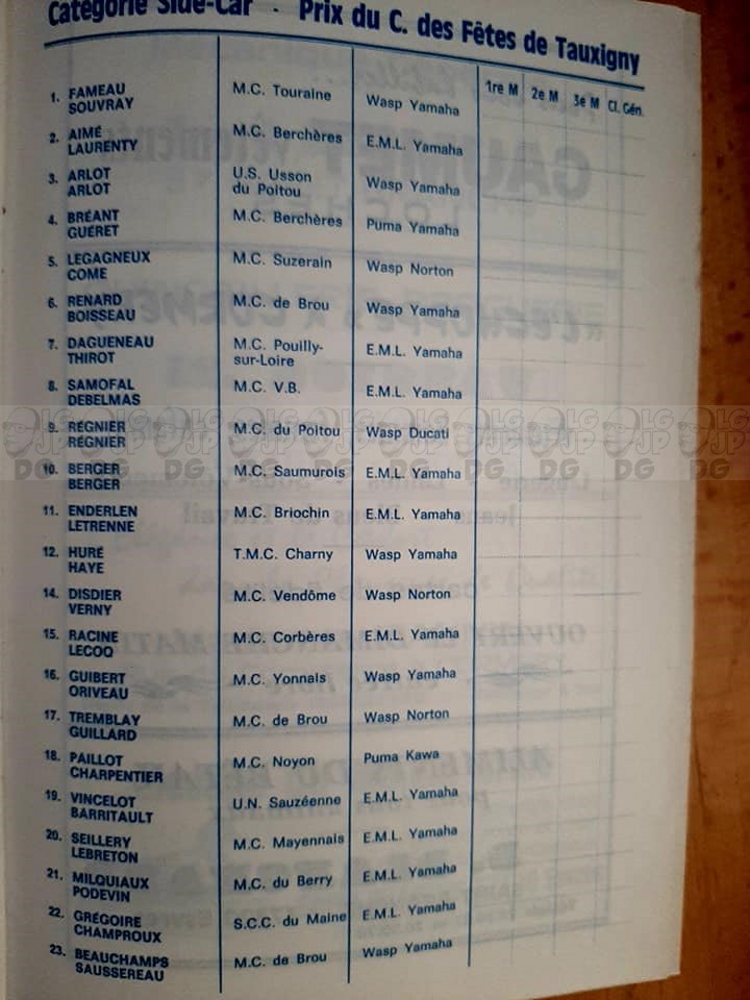 Catégorie Side-Car - Prix du C. des Fêtes de Tauxigny
1re M 2e M 3e M Cl. Gén.
1. FAMEAU M.C. Touraine Wasp Yamaha
SOUVRAY
2. AIMÉ M.C. Berchères E.M.L. Yamaha
LAURENTY
3. ARLOT U.S. Usson Wasp Yamaha
ARLOT du Poitou
4. BRÉANT M.C. Berchères Puma Yamaha
GUÉRET
5. LEGAGNEUX M.C. Suzerain Wasp Norton
COME
6. RENARD M.C. de Brou Wasp Yamaha
BOISSEAU
7. DAGUENEAU M.C. Pouilly- E.M.L. Yamaha
THIROT sur-Loire
8. SAMOFAL M.C. V.B. E.M.L. Yamaha
DEBELMAS
9. RÉGNIER M.C. du Poitou Wasp Ducati
RÉGNIER
10. BERGER M.C. Saumurois E.M.L. Yamaha
BERGER
11. ENDERLEN M.C. Briochin E.M.L. Yamaha
LETRENNE
12. HURÉ T.M.C. Charny Wasp Yamaha
HAYE
14. DISDIER M.C. Vendôme Wasp Norton
VERNY
15. RACINE M.C. Corbères E.M.L. Yamaha
LECOQ
16. GUIBERT M.C. Yonnais Wasp Yamaha
ORIVEAU
17. TREMBLAY M.C. de Brou Wasp Norton
GUILLARD
18. PAILLOT M.C. Noyon Puma Kawa
CHARPENTIER
19. VINCELOT U.N. Sauzéenne E.M.L. Yamaha
BARRITAULT
20. SEILLERY M.C. Mayennais E.M.L. Yamaha
LEBRETON
21. MILQUIAUX M.C. du Berry E.M.L. Yamaha
PODEVIN
22. GRÉGOIRE S.C.C. du Maine E.M.L. Yamaha
CHAMPROUX
23. BEAUCHAMPS M.C. de Brou Wasp Yamaha
SAUSSEREAU